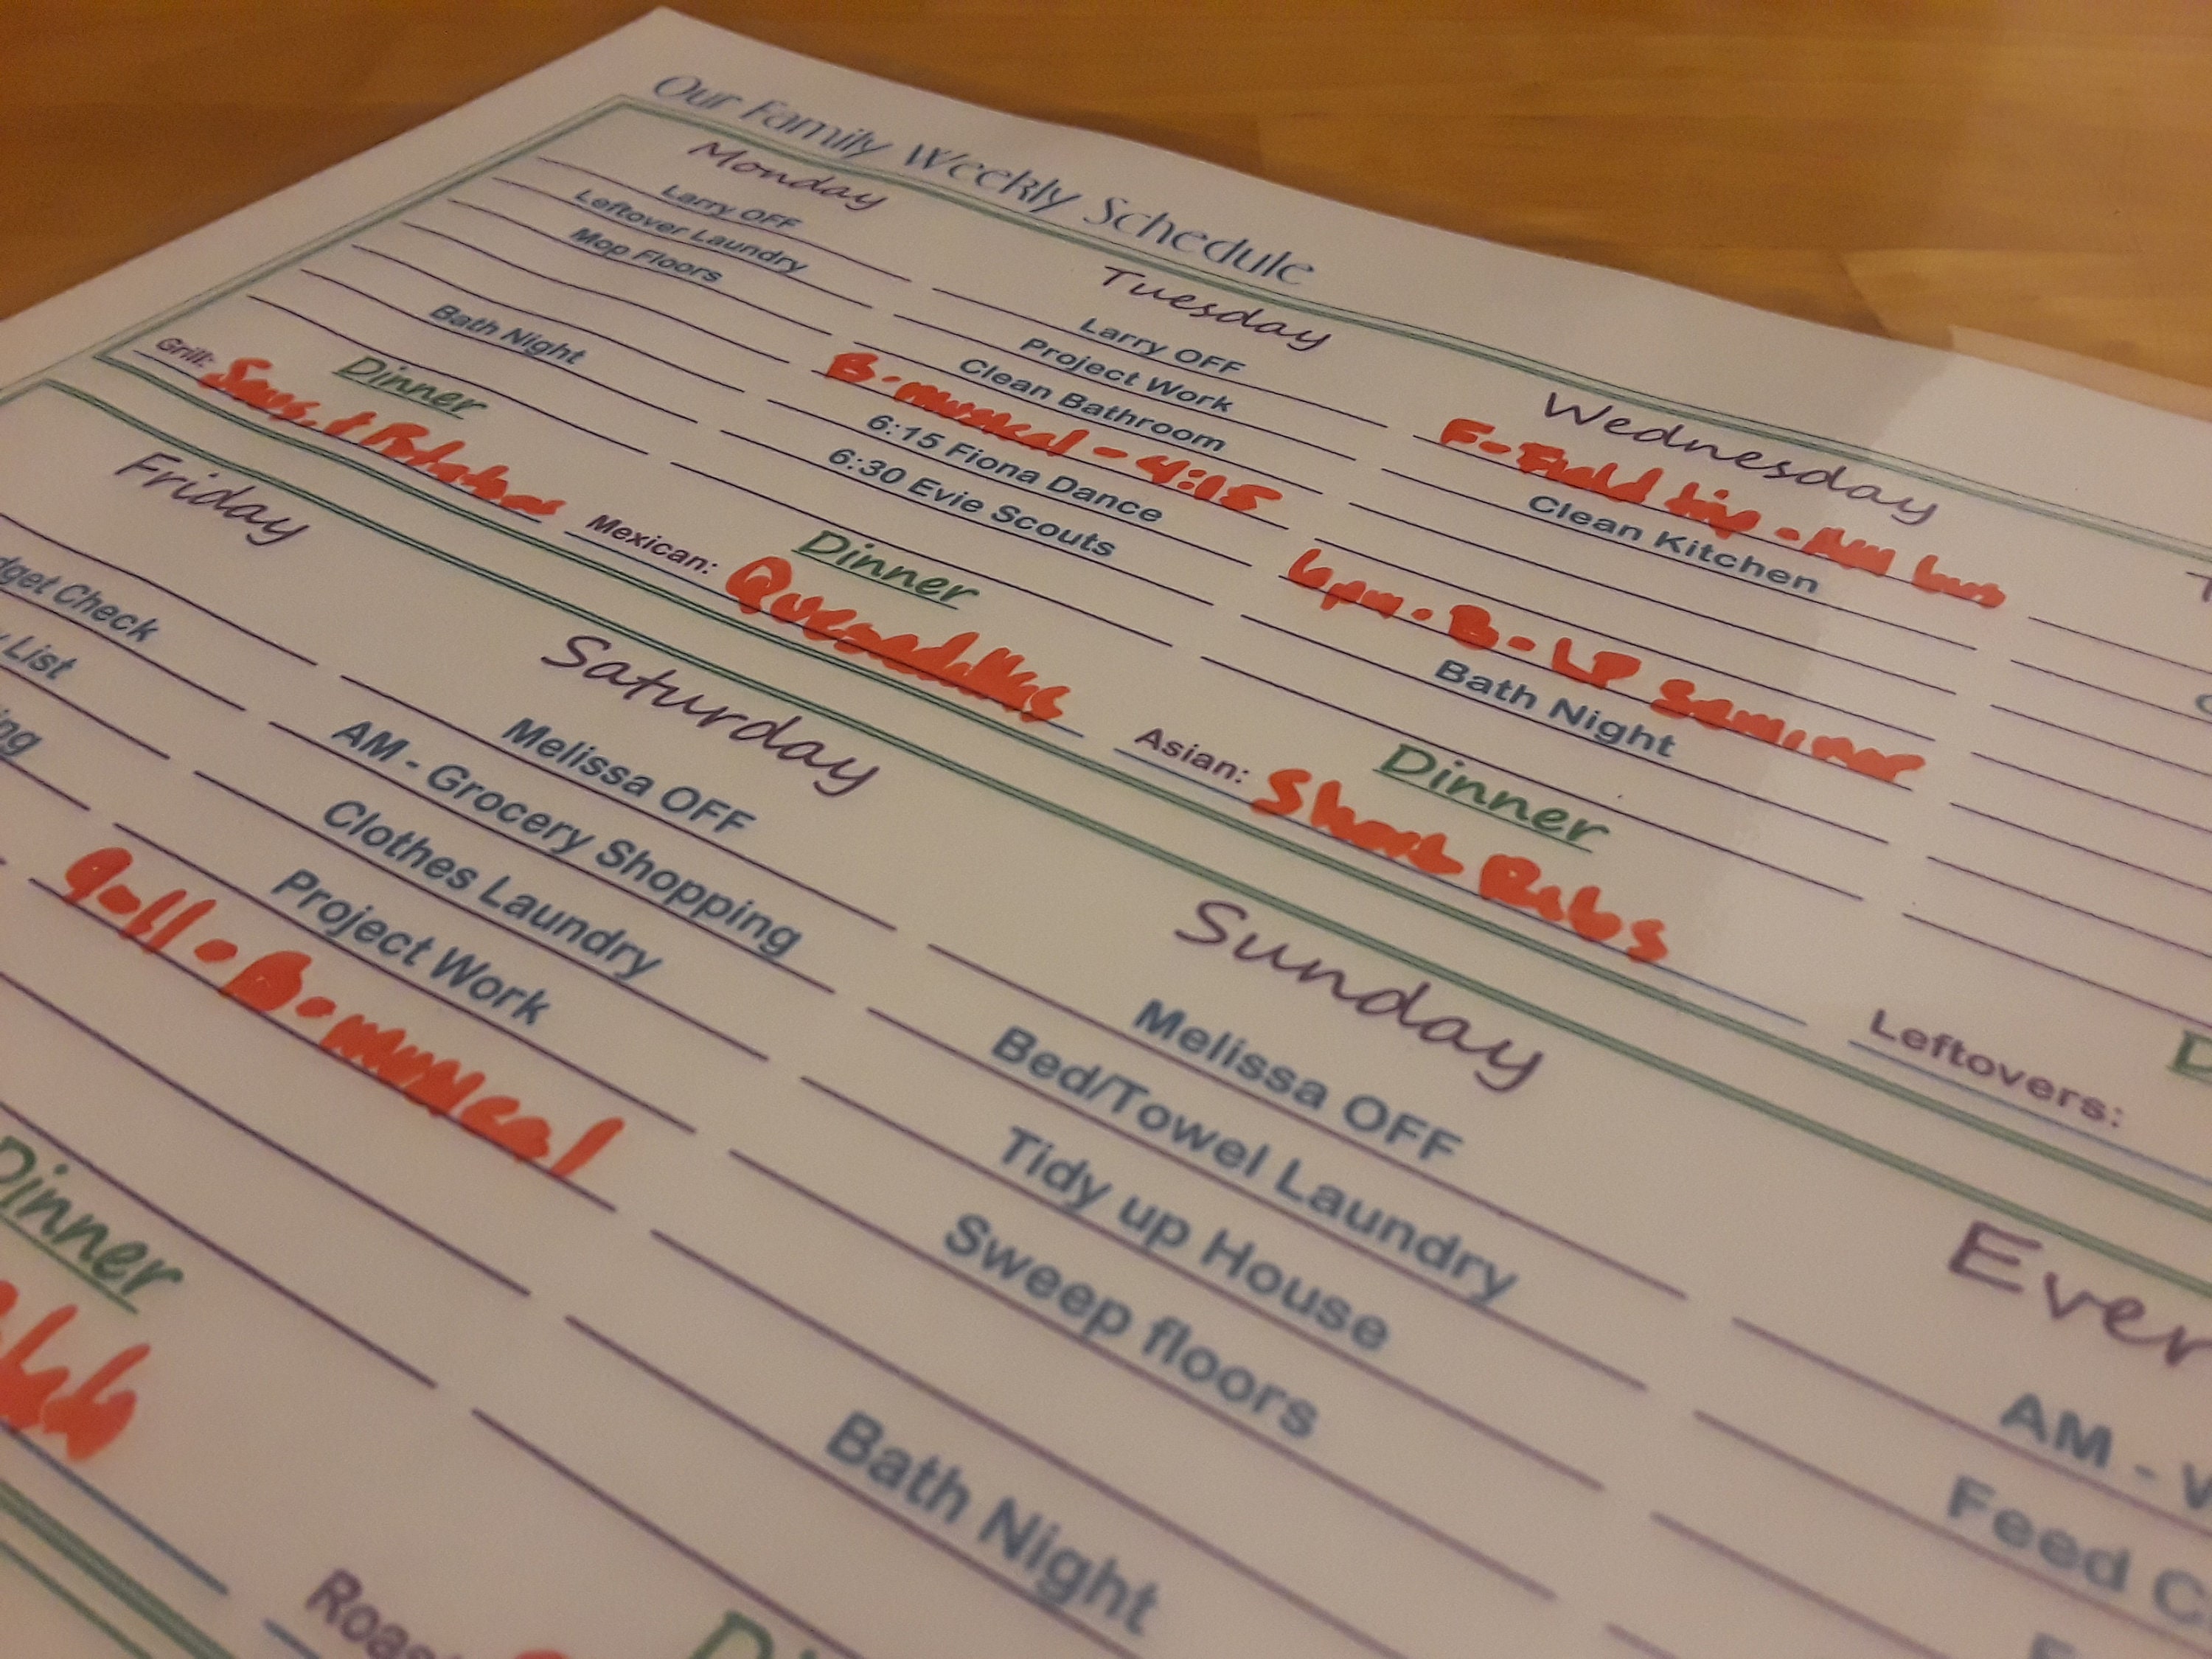 Our Family Weekly Schedule
Monday
Larry OFF
Leftover Laundry
Mop Floors
Bath Night
Dinner
Grill: Saus. & Potatoes
Tuesday
Larry OFF
Project Work
Clean Bathroom
B-musical - 4:15
6:15 Fiona Dance
6:30 Evie Scouts
Dinner
Mexican: Quesadillas
Wednesday
F-Field trip - AM bus
Clean Kitchen
6pm - B - LP Seminar
Bath Night
Dinner
Asian: Short Ribs
Leftovers:
Friday
Check
List
Dinner
Saturday
Melissa OFF
AM - Grocery Shopping
Clothes Laundry
Project Work
9-11 - B - musical
Sunday
Melissa OFF
Bed/Towel Laundry
Tidy up House
Sweep floors
Bath Night
AM -
Feed